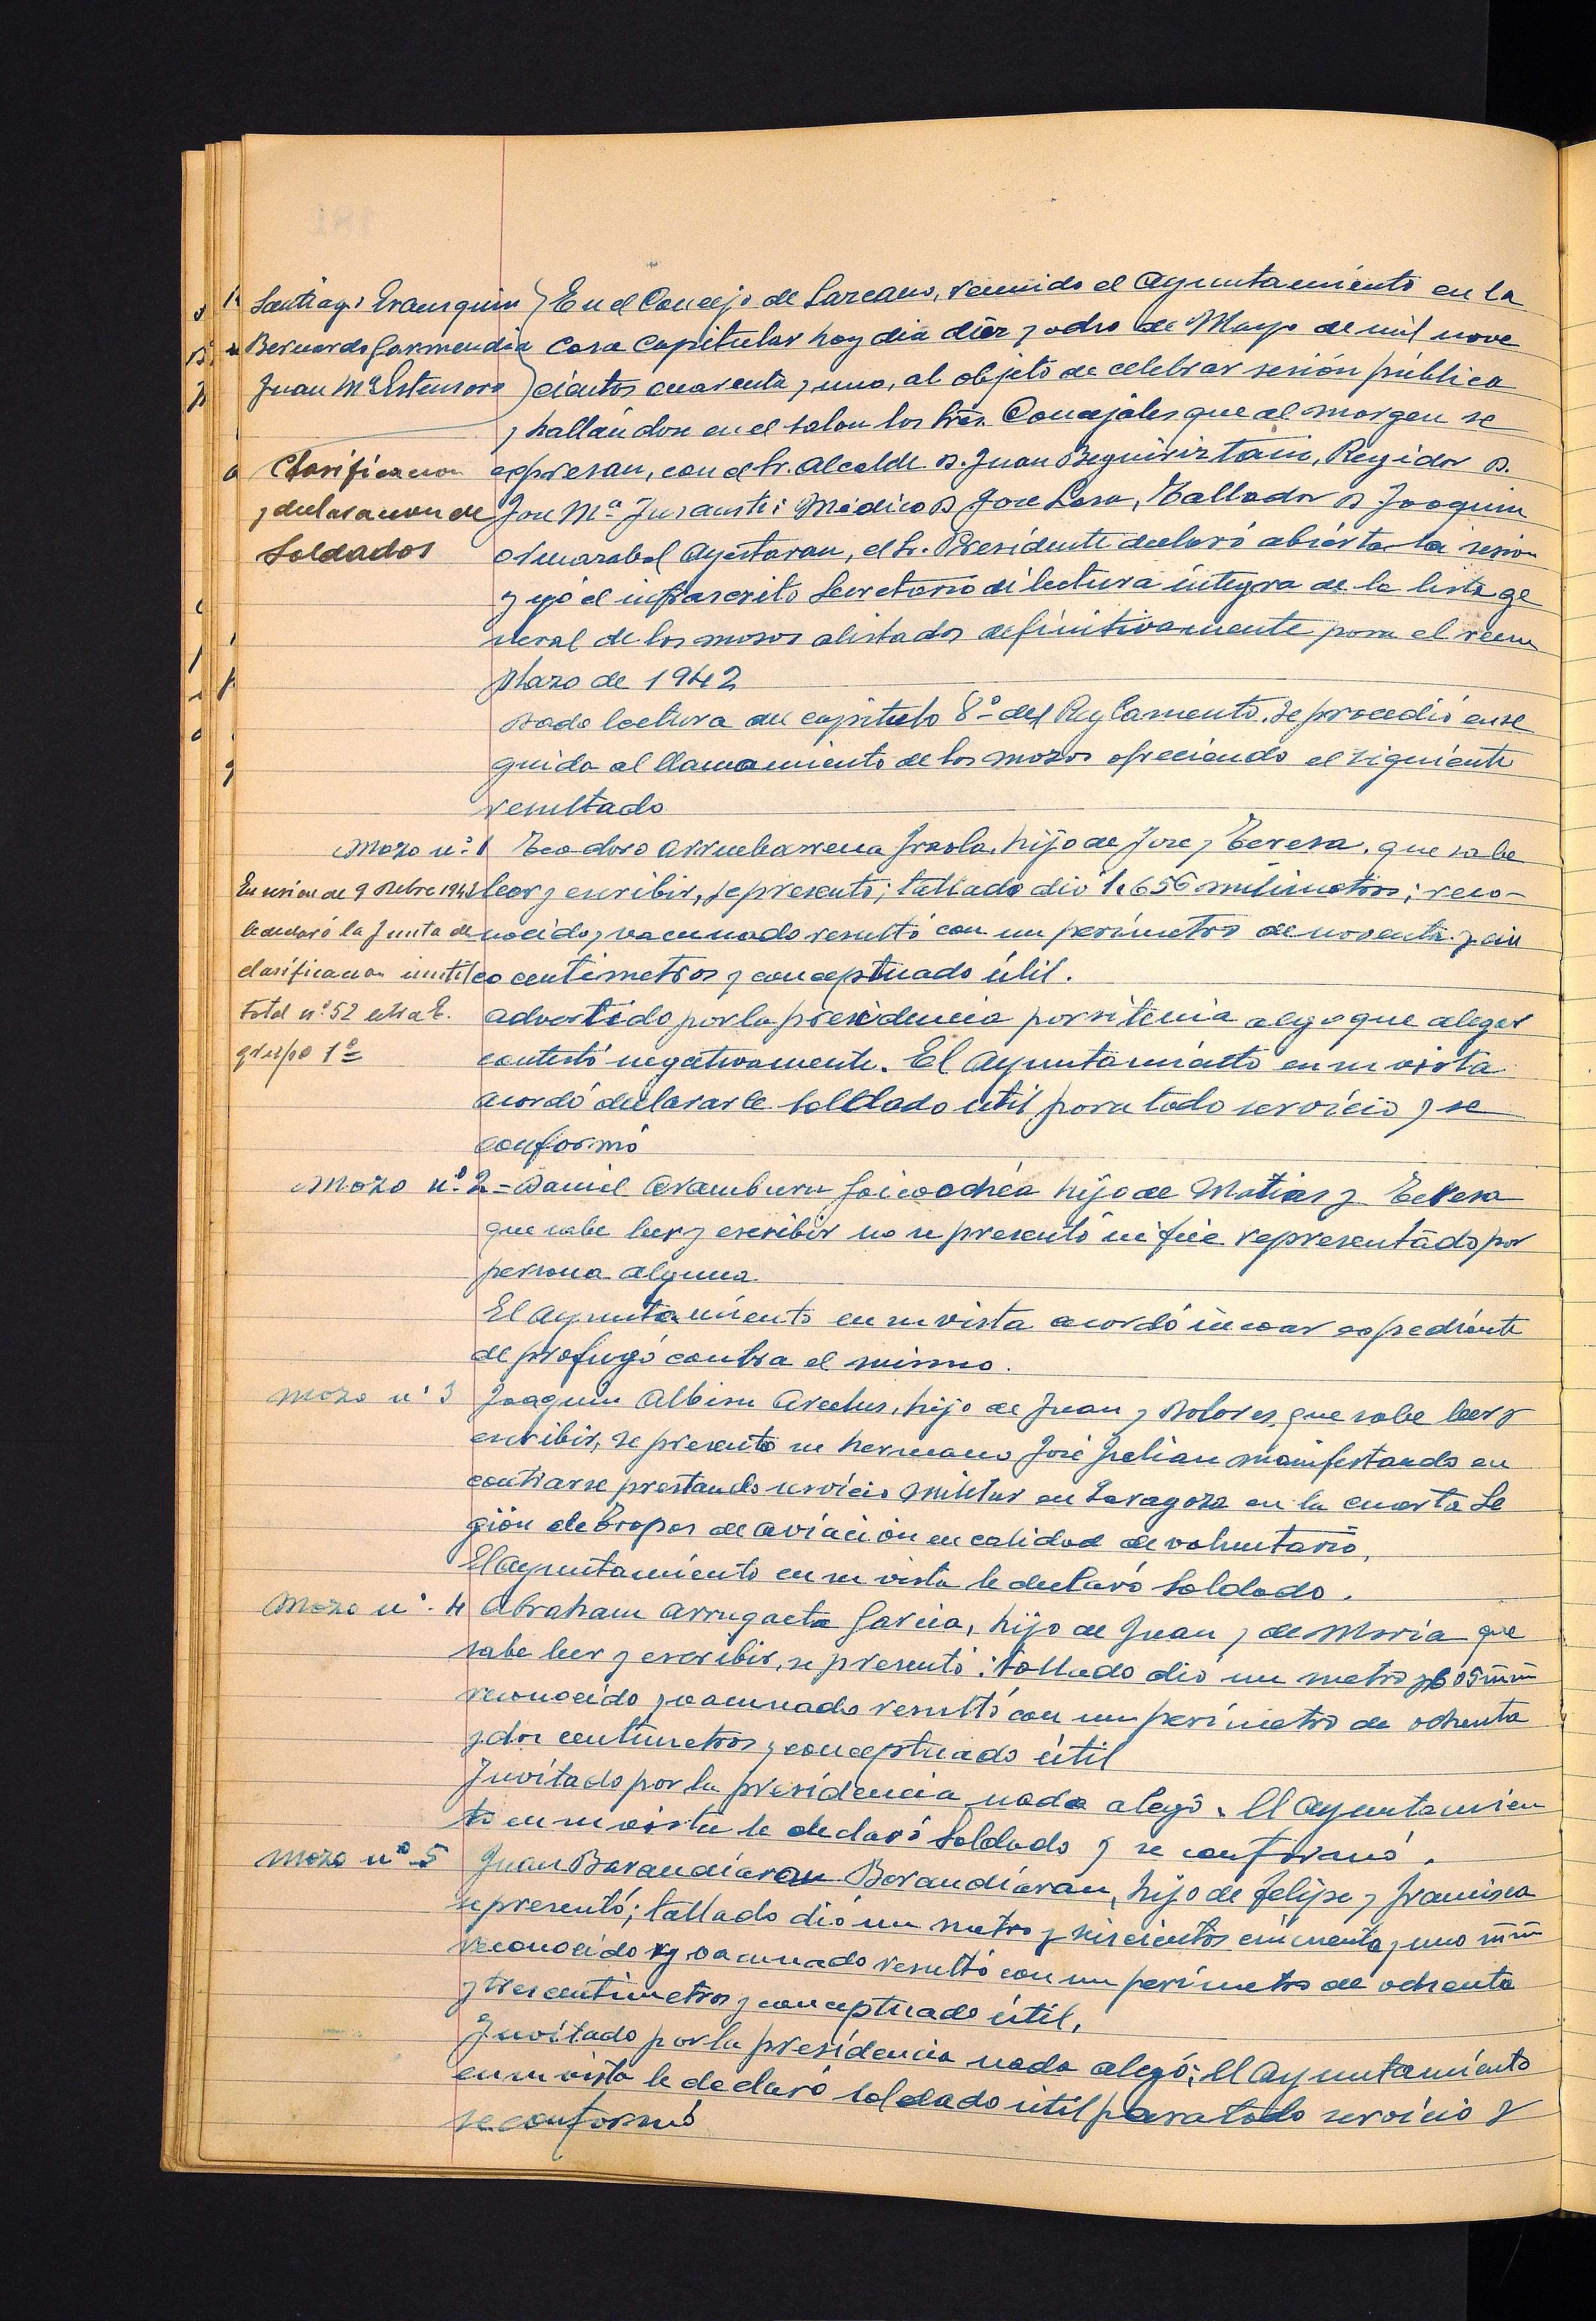 Santiago Iraurquin
Bernardo Garmendia
Juan Mª Estensoro
Clasificacion
y declaracion de
Soldados
En el Concejo de Lazcano, reunido el Ayuntamiento en la
Casa Capitular hoy dia diez y ocho de Mayo de mil nove
cientos cuarenta y uno, al objeto de celebrar sesión pública
y hallándose en el salon los Sres. Concejales que al margen se
expresan, con el Sr. Alcalde D. Juan Beguiristain, Regidor D.
Jose Mª Insausti; Médico D Jose Lasa, Tallador D. Joaquin
Almarabel Ayestaran, el Sr. Presidente declaró abierta la sesion
y yo el infrascrito Secretario di lectura integra de la lista ge
neral de los mozos alistados definitivamente para el reem
plazo de 1942
Dado lectura del capitulo 8º del Reglamento, se procedió ense
guida al llamamiento de los mozos ofreciendo el siguiente
resultado
Mozo nº 1 Teodoro Arruebarrena Iraola, hijo de Jose y Teresa, que sabe
leer y escribir, se presentó; tallado dió 1.656 milimetros; reco-
nocido y vacunado resultó con un perímetro de noventa y cin
co centimetros y conceptuado útil.
En sesion de 9 Obre 1942
le declaró la Junta de
clasificacion inutil
total nº 52 letra E.
grupo 1º
advertido por la presidencia por si tenia algo que alegar
contestó negativamente. El Ayuntamiento en su vista
acordó declararle Soldado útil para todo servicio y se
conformó
Mozo nº 2 = Daniel Aramburu Goicoechea hijo de Matias y Teresa
que sabe leer y escribir no se presentó ni fué representado por
persona alguna.
El Ayuntamiento en su vista acordó incoar expediente
de prófugo contra el mismo.
Mozo nº 3 Joaquin Albisu Arcelus, hijo de Juan y Dolores, que sabe leer y
escribir, se presentó su hermano José Julian manifestando en
contrarse prestando servicio militar en Zaragoza en la cuarta Le
gión de tropas de aviación en calidad de voluntario.
El Ayuntamiento en su vista le declaró Soldado.
Mozo nº. 4 Abraham Arrugaeta Garcia, hijo de Juan y de Maria que
sabe leer y escribir, se presentó: tallado dió un metro y 605 mm
reconocido y vacunado resultó con un perímetro de ochenta
y dos centimetros y conceptuado útil
Invitado por la presidencia nada alegó. El Ayuntamien
to en su vista le declaró Soldado y se conformó.
Mozo nº 5 Juan Barandiaran Barandiaran, hijo de Felipe y Francisca
se presentó; tallado dió un metro y seiscientos cincuenta y uno mm
reconocido y vacunado resultó con un perímetro de ochenta
y tres centimetros y conceptuado útil.
Invitado por la presidencia nada alegó; El Ayuntamiento
en su vista le declaró soldado útil para todo servicio y
se conformó